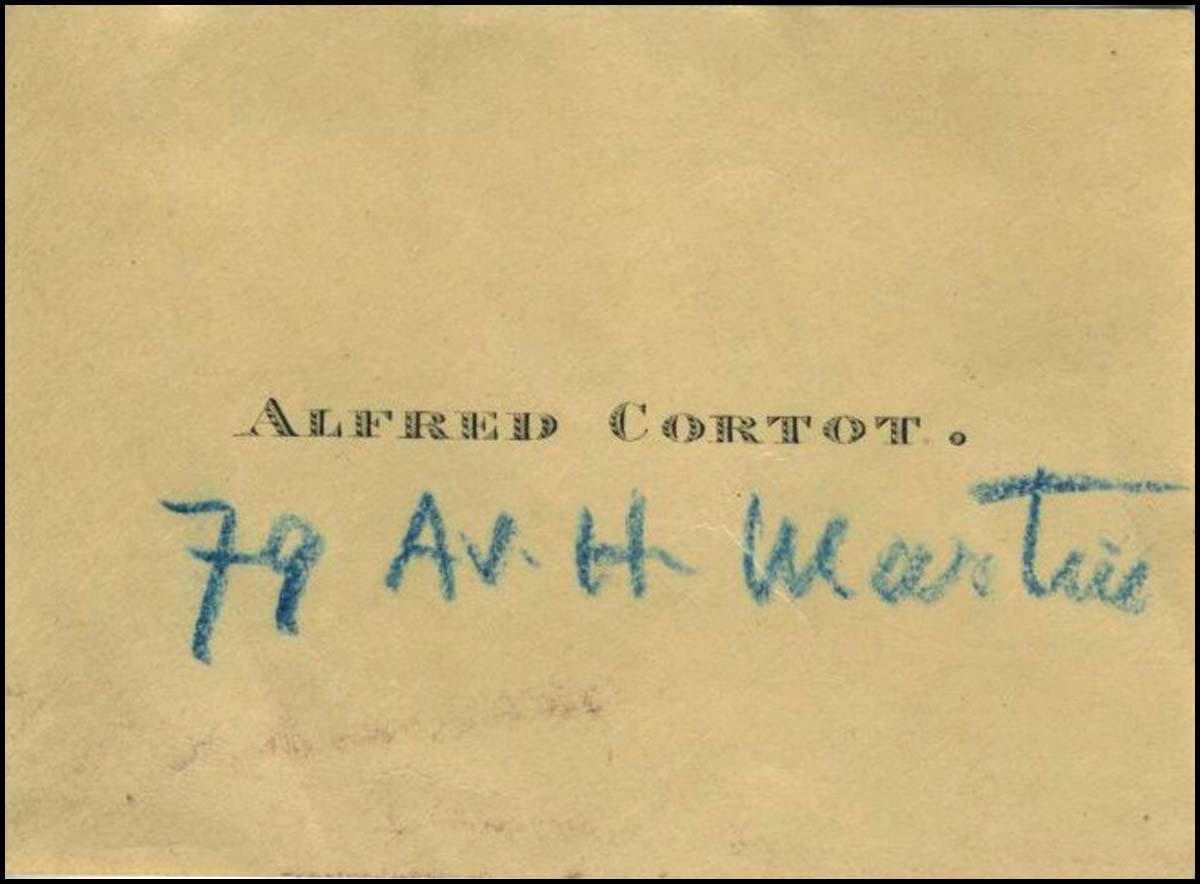 ALFRED CORTOT.
79 Av. H. Martin